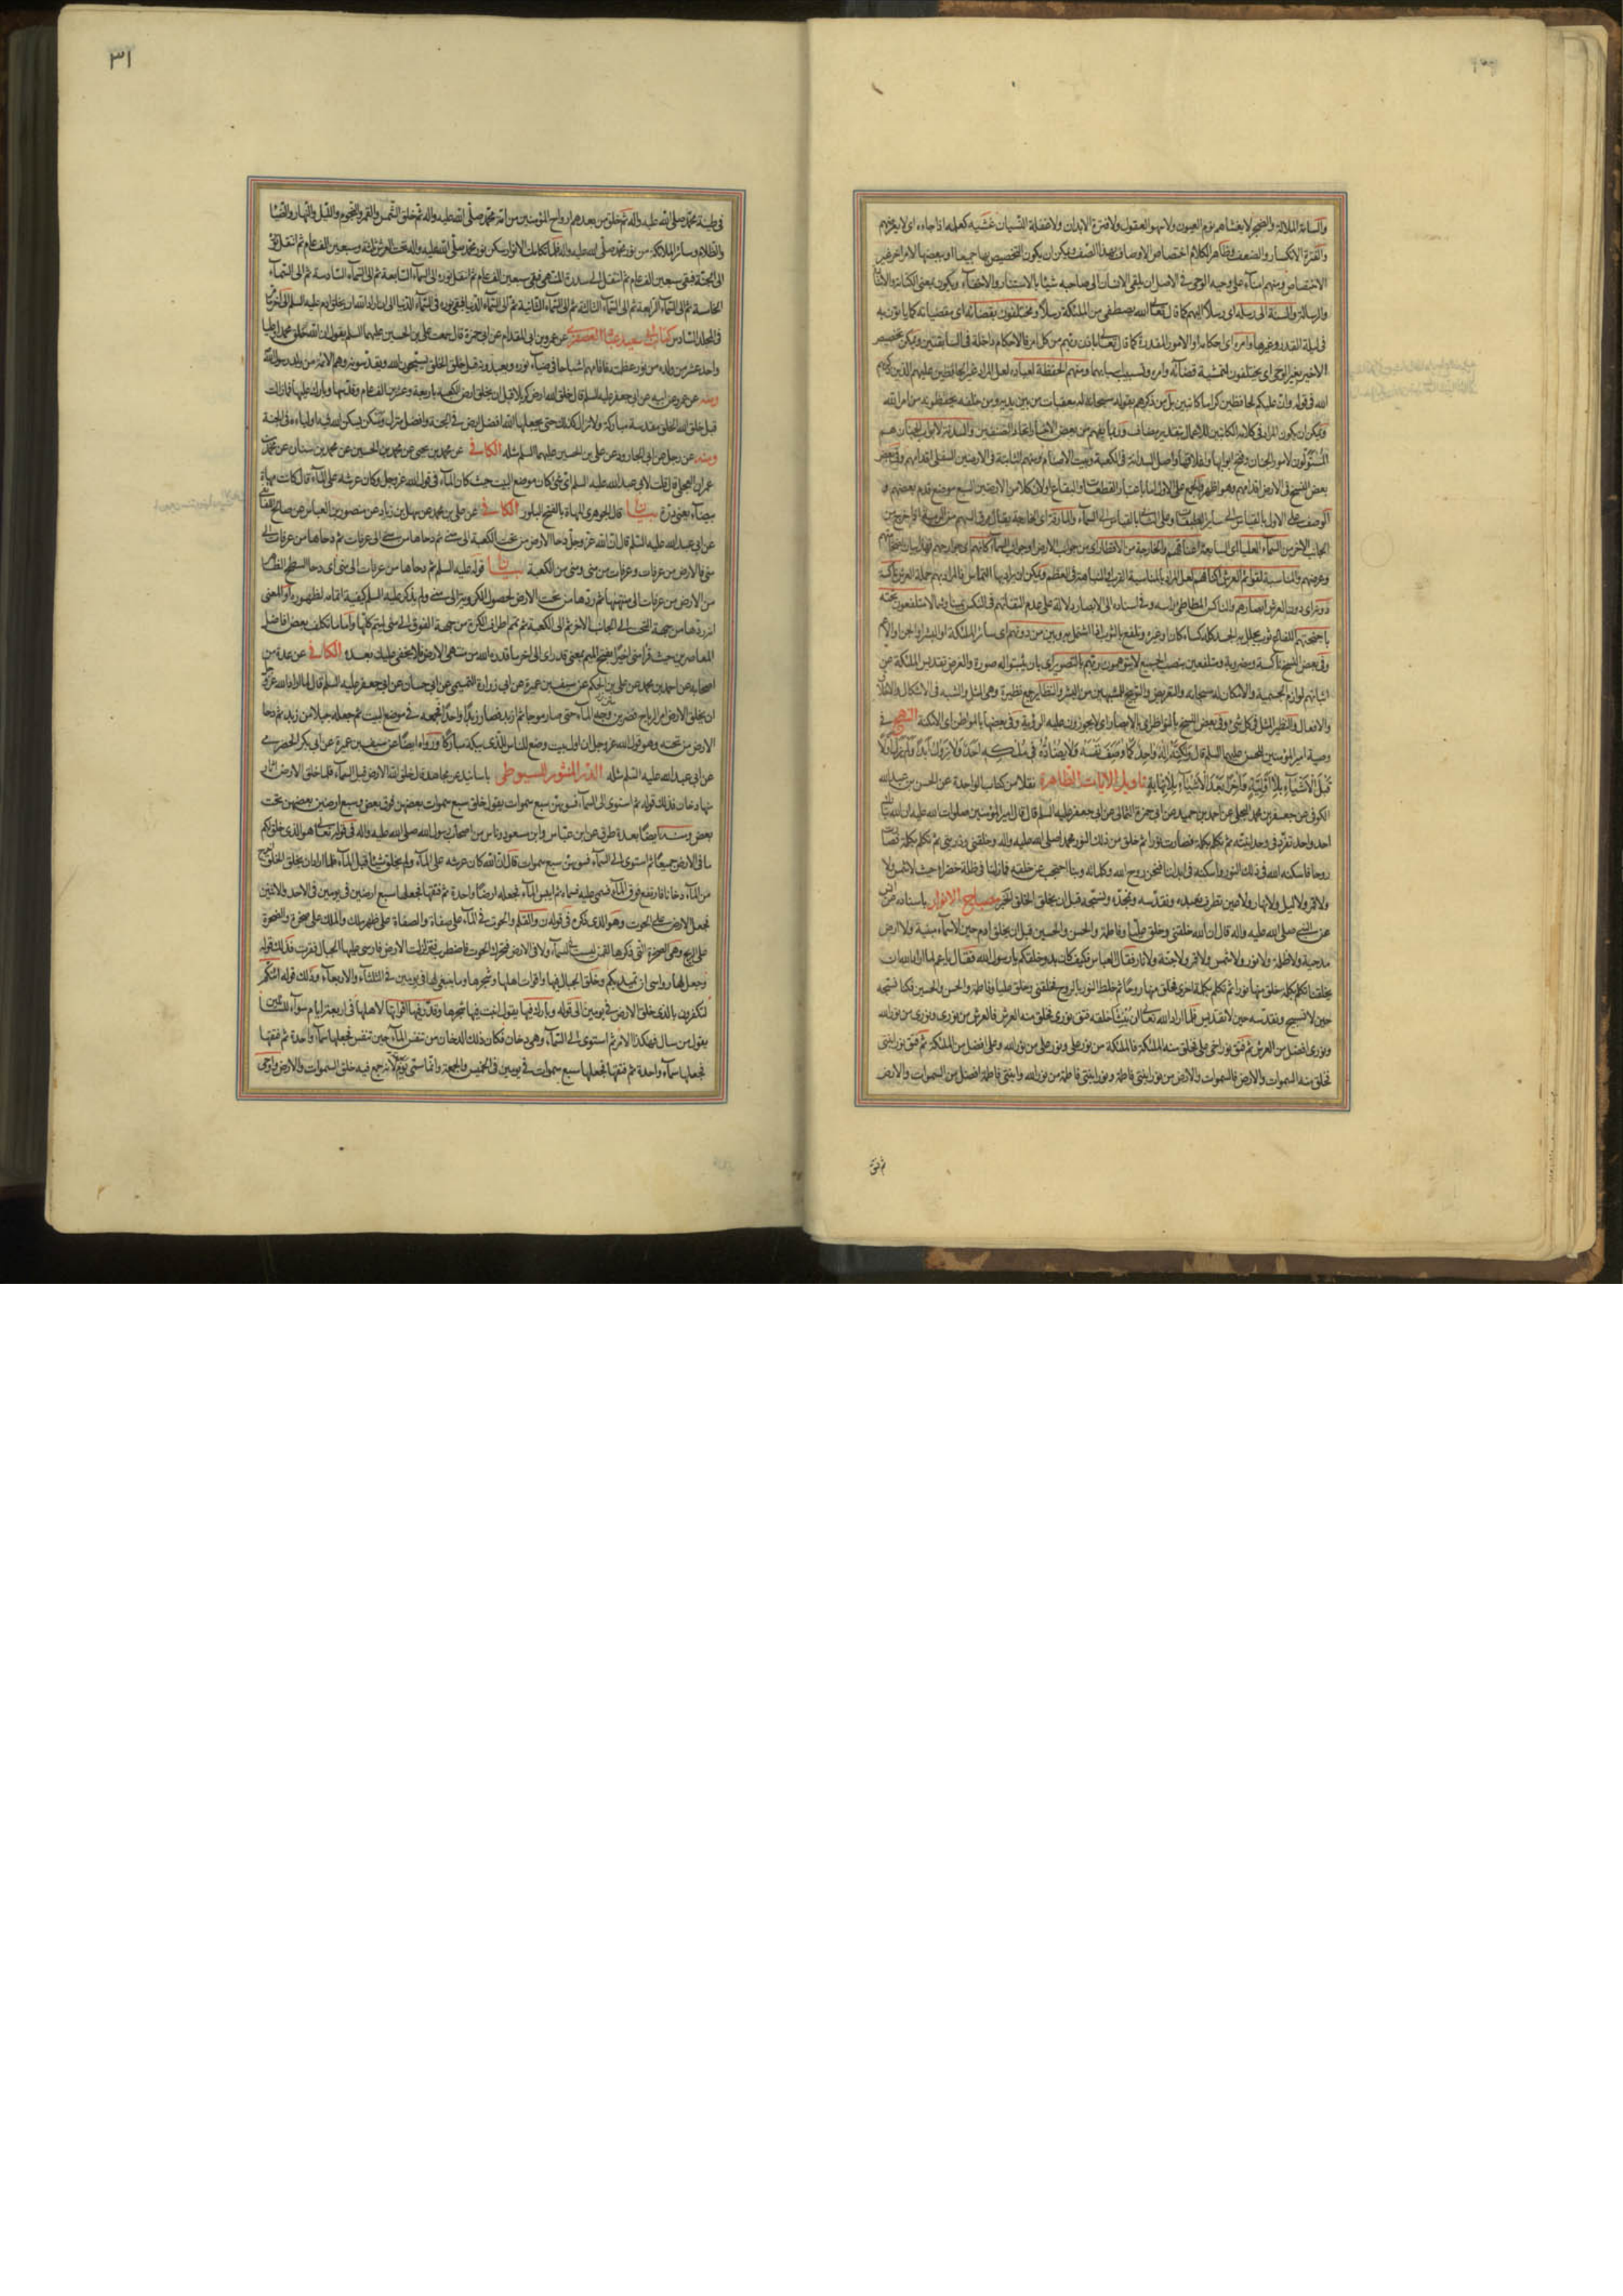 والسامة الملالة والضجر لا يغشاهم نوم العيون ولا سهو العقول ولا فترة الابدان ولا غفلة النسيان غشيه كعلمه اذا جاءه اى لا يعرضهم
والفترة الانكسار والضعف وظاهر الكلام اختصاص الاوصاف بهذا الصنف ويمكن ان يكون التخصيص بها جميعا او ببعضها لامر اخر غير
الاختصاص ومنهم امناء على وحيه الوحى فى الاصل ان يلقى الانسان الى صاحبه شيئا بالاستتار والاخفاء ويكون بمعنى الكتابة والاشارة
والرسالة والسنة الى رسله اى رسلا اليهم كما قال تعالى الله يصطفى من الملئكة رسلا ومختلفون بقضائه اى بمقضياته كما ياتون به
فى ليلة القدر وغيرها وامره اى احكامه او الامور المقدرة كما قال تعالى باذن ربهم من كل امر فالاحكام داخلة فى السابقتين ويمكن تخصيص
الاخير بغير الوحى اى يختلفون لتمشية قضائه وامره وتسبيب اسبابهما ومنهم الحفظة لعباده لعل المراد غير الحافظين عليهم الذين ذكرهم
الله فى قوله وان عليكم لحافظين كراما كاتبين بل من ذكرهم بقوله سبحانه له معقبات من بين يديه ومن خلفه يحفظونه من امر الله
ويمكن ان يكون المراد فى كلامه الكاتبين للاعمال بتقدير مضاف وربما يفهم من بعض الاخبار اتحاد الصنفين والسدنة لابواب الجنان هم
المتولون لامور الجنان وفتح ابوابها واغلاقها واصل السدانة فى الكعبة وبيت الاصنام ومنهم الثابتة فى الارضين السفلى اقدامهم وفى بعض
بعض النسخ فى الارض اقدامهم وهو اظهر والجمع على الاول اما باعتبار القطعات والبقاع او لان كلا من الارضين السبع موضع قدم بعضهم و
الوصف على الاول بالقياس الى سائر الطبقات وعلى الثانى بالقياس الى السماء والمارقة اى الخارجة يقال مرق السهم من الرمية اذا خرج من
الجانب الاخر من السماء العليا اى السابعة اعناقهم والخارجة من الاقطار اى من جوانب الارض او جوانب السماء اركانهم اى جوارحهم فهذا بيان لضخامتهم
وعرضهم والمناسبة لقوائم العرش اكتافهم لعل المراد بالمناسبة القرب او المشابهة فى العظم ويمكن ان يراد بها التماس فالمراد بهم حملة العرش ناكسة
دونه اى دون العرش ابصارهم والناكس المطاطئ راسه وفى اسناده الى الابصار دلالة على عدم التفاتهم فى النكس يمينا وشمالا متلفعون تحته
باجنحتهم اللفاع ثوب يجلل به الجسد كله كساء كان او غيره وتلفع بالثوب اذا اشتمل به وبين من دونهم اى سائر الملئكة او البشر او الجن او الاعم
وفى بعض النسخ ناكسة ومضروبة ومتلفعين بنصب الجميع لا يتوهمون ربهم بالتصوير اى بان يثبتوا له صورة والغرض تقديس الملئكة عن
اثباتهم لوازم الجسمية والامكان له سبحانه والتعريض والتوبيخ للمشبهين من البشر والنظائر جمع نظيرة وهى المثل والشبه فى الاشكال والاخلاق
والافعال والنظير المثل فى كل شئ وفى بعض النسخ بالنواظر اى بالابصار اى لا يجوزون عليه الرؤية وفى بعضها بالمواطن اى الامكنة النهج فى
وصية امير المؤمنين للحسن عليهما السلام قال ولكنه اله واحد كما وصف نفسه ولا يضاده فى ملكه احد ولا يزول ابدا ولم يزل اول
قبل الاشياء بلا اولية واخر بعد الاشياء بلا نهاية تاويل الايات الظاهرة نقلا من كتاب الواحدة عن الحسن بن عبد الله
الكوفى عن جعفر بن محمد البجلى عن احمد بن حميد عن ابى حمزة الثمالى عن ابى جعفر عليه السلام قال قال امير المؤمنين صلوات الله عليه ان الله تبارك
احد واحد تفرد فى وحدانيته ثم تكلم بكلمة فصارت نورا ثم خلق من ذلك النور محمدا صلى الله عليه واله وخلقنى وذريتى ثم تكلم بكلمة فصارت
روحا فاسكنه الله فى ذلك النور واسكنه فى ابداننا فنحن روح الله وكلماته وبنا احتجب عن خلقه فما زلنا فى ظلة خضراء حيث لا شمس ولا
ولا قمر ولا ليل ولا نهار ولا عين تطرف نعبده ونقدسه ونمجده ونسبحه قبل ان يخلق الخلق الخبر مصباح الانوار باسناده عن انس
عن النبى صلى الله عليه واله قال ان الله خلقنى وخلق عليا وفاطمة والحسن والحسين قبل ان يخلق ادم حين لا سماء مبنية ولا ارض
مدحية ولا ظلمة ولا نور ولا شمس ولا قمر ولا جنة ولا نار فقال العباس فكيف كان بدو خلقكم يا رسول الله فقال يا عم لما اراد الله ان
يخلقنا تكلم بكلمة خلق منها نورا ثم تكلم بكلمة اخرى فخلق منها روحا ثم خلط النور بالروح فخلقنى وخلق عليا وفاطمة والحسن والحسين فكنا نسبحه
حين لا تسبيح ونقدسه حين لا تقديس فلما اراد الله تعالى ان ينشئ خلقه فتق نورى فخلق منه العرش فالعرش من نورى ونورى من نور الله
ونورى افضل من العرش ثم فتق نور اخى على فخلق منه الملئكة فالملئكة من نور على ونور على من نور الله وعلى افضل من الملئكة ثم فتق نور ابنتى
فخلق منه السموات والارض فالسموات والارض من نور ابنتى فاطمة ونور ابنتى فاطمة من نور الله وابنتى فاطمة افضل من السموات والارض
ثم فتق
٣١
فى طينة محمد صلى الله عليه واله ثم خلق من بعدهم ارواح المؤمنين من امة محمد صلى الله عليه واله ثم خلق الشمس والقمر والنجوم والليل والنهار والضياء
والظلام وسائر الملائكة من نور محمد صلى الله عليه واله فلما تكاملت الانوار سكن نور محمد صلى الله عليه واله تحت العرش ثلثة وسبعين الف عام ثم انتقل نوره
الى الجنة فبقى سبعين الف عام ثم انتقل الى سدرة المنتهى فبقى سبعين الف عام ثم انتقل نوره الى السماء السابعة ثم الى السماء السادسة ثم الى السماء
الخامسة ثم الى السماء الرابعة ثم الى السماء الثالثة ثم الى السماء الثانية ثم الى السماء الدنيا فبقى نوره فى السماء الدنيا الى ان اراد الله ان يخلق ادم عليه السلام الى اخر ما مر
فى المجلد السادس كتاب ابى سعيد عباد العصفرى عن عمرو بن ابى المقدام عن ابى حمزة قال سمعت على بن الحسين عليهما السلم يقول ان الله خلق محمدا وعليا
واحد عشر من ولده من نور عظمته فاقامهم اشباحا فى ضياء نوره يعبدونه قبل خلق الخلق يسبحون الله ويقدسونه وهم الائمة من ولد رسول الله
ومنه عن عمرو عن ابيه عن ابى جعفر عليه السلم قال خلق الله ارض كربلا قبل ان يخلق ارض الكعبة باربعة وعشرين الف عام وقدسها وبارك عليها فما زالت
قبل خلق الله الخلق مقدسة مباركة ولا تزال كذلك حتى يجعلها الله افضل ارض فى الجنة وافضل منزل ومسكن يسكن الله فيه اولياءه فى الجنة
ومنه عن رجل عن ابى الجارود عن على بن الحسين عليهما السلم مثله الكافى عن محمد بن يحيى عن محمد بن الحسين عن محمد بن سنان عن محمد بن
عمران العجلى قال قلت لابى عبد الله عليه السلم اى شئ كان موضع البيت حيث كان الماء فى قول الله عز وجل وكان عرشه على الماء قال كانت مهاة
بيضاء يعنى درة بيان قال الجوهرى المهاة بالفتح البلور الكافى عن على بن محمد عن سهل بن زياد عن منصور بن العباس عن صالح اللفائفى
عن ابى عبد الله عليه السلم قال ان الله عز وجل دحا الارض من تحت الكعبة الى منى ثم دحاها من منى الى عرفات ثم دحاها من عرفات الى
منى فالارض من عرفات وعرفات من منى ومنى من الكعبة بيان قوله عليه السلم ثم دحاها من عرفات الى منى اى دحا السطح الظاهر
من الارض من عرفات الى منتهيها ثم ردها من تحت الارض لحصول الكروية الى منى ولم يذكر عليه السلم كيفية اتمامه لظهوره او المعنى
انه ردها من جهة التحت الى الجانب الاخر ثم الى الكعبة ثم تمم اطراف الكرة من جهة الفوق الى منى ليتم كلها واما ما تكلف بعض افاضل
المعاصرين حيث قرأ منى اخيرا بفتح الميم بمعنى قدر اى الى اخر ما قدره الله من منتهى الارض فلا يخفى عليك بعده الكافى عن عدة من
اصحابه عن احمد بن محمد عن على بن الحكم عن سيف بن عميرة عن ابى زرارة التميمى عن ابى حسان عن ابى جعفر عليه السلم قال لما اراد الله عز وجل
ان يخلق الارض امر الرياح فضربن وجه الماء حتى صار موجا ثم ازبد فصار زبدا واحدا فجمعه فى موضع البيت ثم جعله جبلا من زبد ثم دحا
الارض من تحته وهو قول الله عز وجل ان اول بيت وضع للناس للذى ببكة مباركا ورواه ايضا عن سيف بن عميرة عن ابى بكر الحضرمى
عن ابى عبد الله عليه السلم مثله الدر المنثور للسيوطى باسانيد عن مجاهد قال خلق الله الارض قبل السماء فلما خلق الارض ثار
منها دخان فذلك قوله ثم استوى الى السماء فسويهن سبع سموات يقول خلق سبع سموات بعضهن فوق بعض وسبع ارضين بعضهن تحت
بعض ومنه ايضا بعدة طرق عن ابن عباس وابن مسعود وناس من اصحاب رسول الله صلى الله عليه واله فى قوله تعالى هو الذى خلق لكم
ما فى الارض جميعا ثم استوى الى السماء فسويهن سبع سموات قال ان الله كان عرشه على الماء ولم يخلق شيئا قبل الماء فلما اراد ان يخلق الخلق اخرج
من الماء دخانا فارتفع فوق الماء فسمى عليه فسماه سماء ثم ايبس الماء فجعله ارضا واحدة ثم فتقها فجعلها سبع ارضين فى يومين فى الاحد والاثنين
فجعل الارض على الحوت وهو الذى ذكره فى قوله ن والقلم والحوت فى الماء على صفاة والصفاة على ظهر ملك والملك على صخرة والصخرة
على الريح وهى الصخرة التى ذكرها لقمن ليست فى السماء ولا فى الارض فتحرك الحوت فاضطرب فتزلزلت الارض فارسى عليها الجبال فقرت فذلك قوله
وجعل لها رواسى ان تميد بكم وخلق الجبال فيها واقوات اهلها وشجرها وما ينبغى لها فى يومين فى الثلثاء والاربعاء وذلك قوله ائنكم
لتكفرون بالذى خلق الارض فى يومين الى قوله وبارك فيها يقول انبت فيها شجرها وقدر فيها اقواتها لاهلها فى اربعة ايام سواء للسائلين
يقول من سال فهكذا الامر ثم استوى الى السماء وهى دخان فكان ذلك الدخان من تنفس الماء حين تنفس فجعلها سماء واحدة ثم فتقها
فجعلها سماء واحدة ثم فتقها فجعلها سبع سموات فى يومين فى الخميس والجمعة وانما سمى يوم الجمعة لانه جمع فيه خلق السموات والارض واوحى